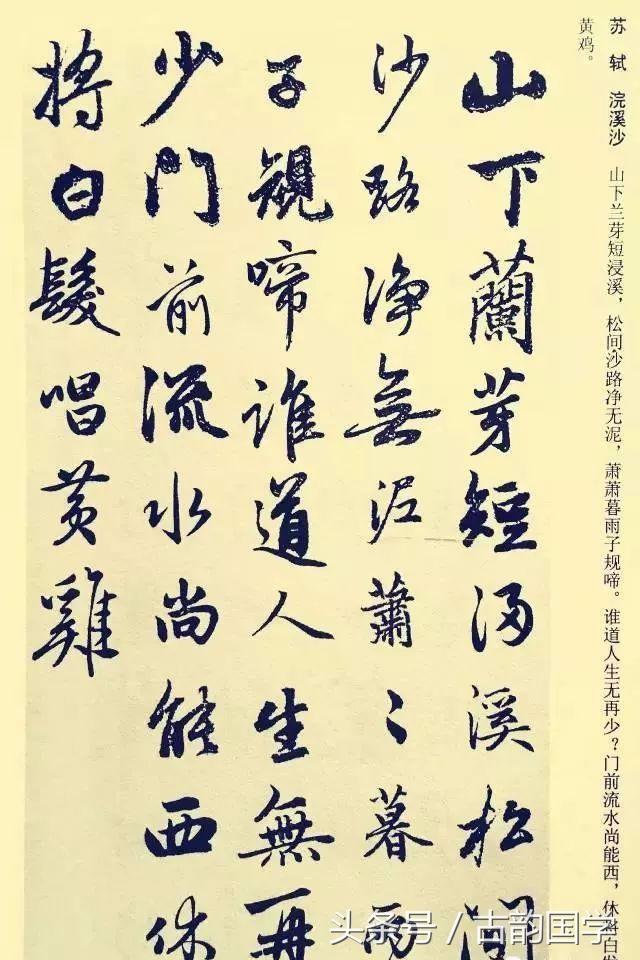 苏轼 浣溪沙 山下兰芽短浸溪，松间沙路净无泥，萧萧暮雨子规啼。谁道人生无再少？门前流水尚能西，休将白发
黄鸡。
山下蘭芽短浸溪松間
沙路净無泥蕭〻暮雨
子規啼誰道人生無再
少門前流水尚能西休
將白髮唱黄雞
头条号 / 古韵国学